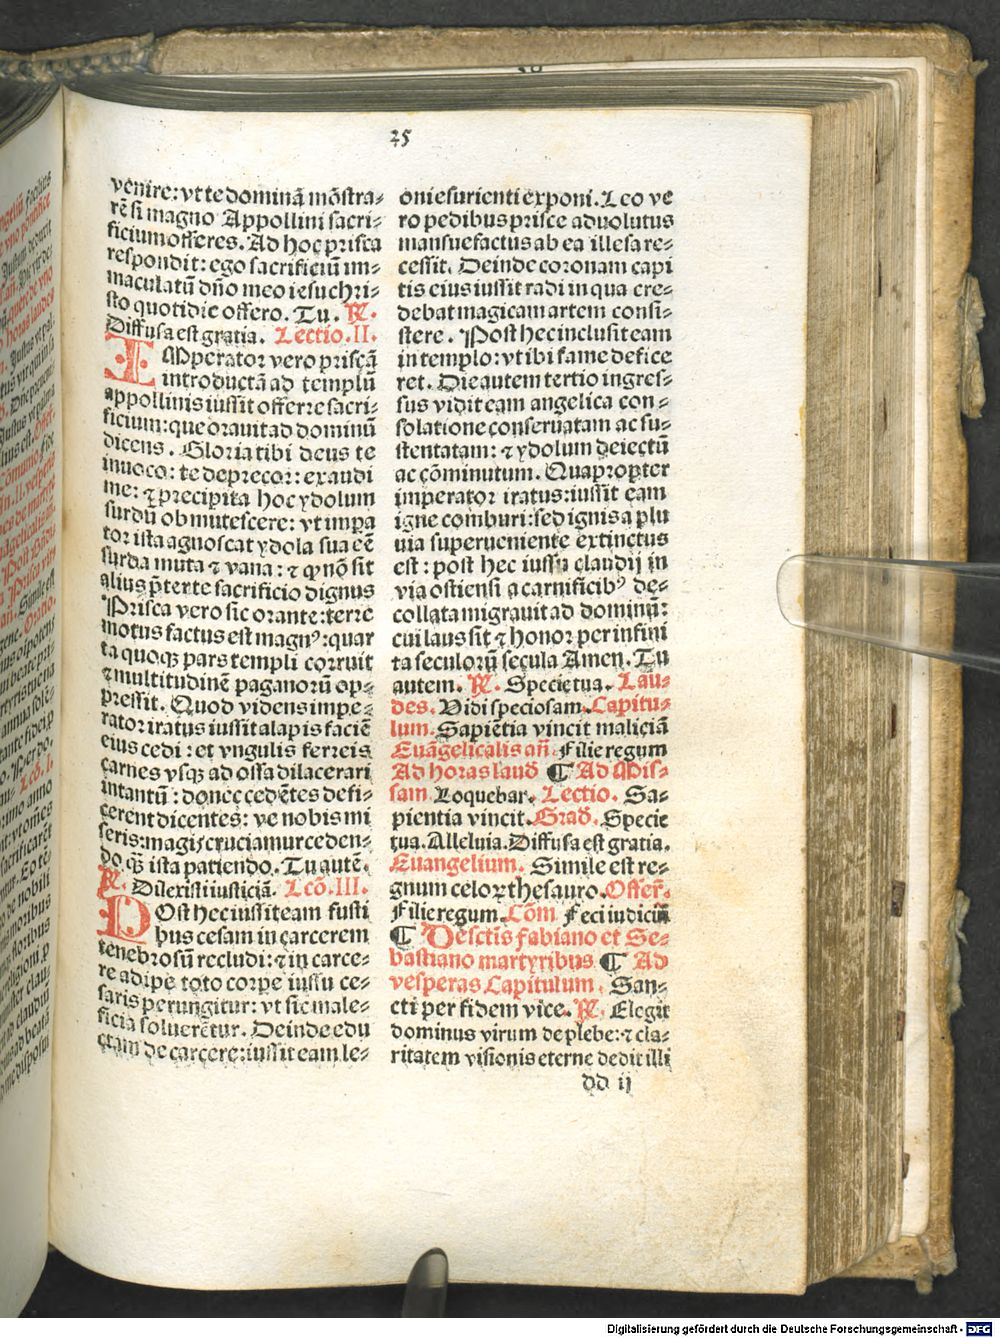 25
venire: vt te dominā mōstra⸗
rē si magno Appollini sacri⸗
ficium offeres. Ad hoc prisca
respondit: ego sacrificiū im⸗
maculatū dño meo iesu chri⸗
sto quotidie offero. Tu. ℟.
Diffusa est gratia. Lectio. II.
IMperator vero priscā
introductā ad templū
appollinis iussit offerre sacri⸗
ficium: que orauit ad dominū
dicens. Gloria tibi deus te
inuoco: te deprecor: exaudi
me: ⁊ precipita hoc ydolum
surdū obmutescere: vt impa
tor ista agnoscat ydola sua eē
surda muta ⁊ vana: ⁊ ꝙ nō sit
alius p̄ter te sacrificio dignus
Prisca vero sic orante: terre
motus factus est magnꝰ: quar
ta quoqꝫ pars templi corruit
⁊ multitudinē paganorū op⸗
pressit. Quod videns impe⸗
rator iratus iussit alapis faciē
eius cedi: et vngulis ferreis
carnes vsqꝫ ad ossa dilacerari
intantū: donec cedētes defi⸗
cerent dicentes: ve nobis mi
seris: magis cruciamur ceden⸗
do ꝙ̄ ista patiendo. Tu autē.
℟. Dilexisti iusticiā. Lcō. III.
POst hec iussit eam fusti
bus cesam in carcerem
tenebrosū recludi: ⁊ in carce⸗
re adipe toto corpe iussu ce⸗
saris perungitur: vt sic male⸗
ficia soluerētur. Deinde edu
ctam de carcere: iussit eam le⸗
oni esurienti exponi. Leo ve
ro pedibus prisce aduolutus
mansuefactus ab ea illesa re⸗
cessit. Deinde coronam capi
tis eius iussit radi in qua cre⸗
debat magicam artem consi⸗
stere. Post hec inclusit eam
in templo: vt ibi fame defice
ret. Die autem tertio ingres⸗
sus vidit eam angelica con⸗
solatione conseruatam ac su⸗
stentatam: ⁊ ydolum deiectū
ac cōminutum. Quapropter
imperator iratus: iussit eam
igne comburi: sed ignis a plu
uia superueniente extinctus
est: post hec iussu claudij in
via ostiensi a carnificibꝰ de⸗
collata migrauit ad dominū:
cui laus sit ⁊ honor per infini
ta seculorū secula Amen. Tu
autem. ℟. Specie tua. Lau⸗
des. Vidi speciosam. Capitu⸗
lum. Sapiētia vincit maliciā
Euāgelicalis añ. Filie regum
Ad horas laud̄ ¶ Ad Mis⸗
sam Loquebar. Lectio. Sa⸗
pientia vincit. Grad̄. Specie
tua. Alleluia. Diffusa est gratia.
Euangelium. Simile est re⸗
gnum celoꝝ thesauro. Offer̄.
Filie regum. Cōm Feci iudiciū
¶ De sctīs fabiano et Se⸗
bastiano martyribus ¶ Ad
vesperas Capitulum. San⸗
cti per fidem vice. ℟. Elegit
dominus virum de plebe: ⁊ cla⸗
ritatem visionis eterne dedit illi
dd ij
Digitalisierung gefördert durch die Deutsche Forschungsgemeinschaft - DFG